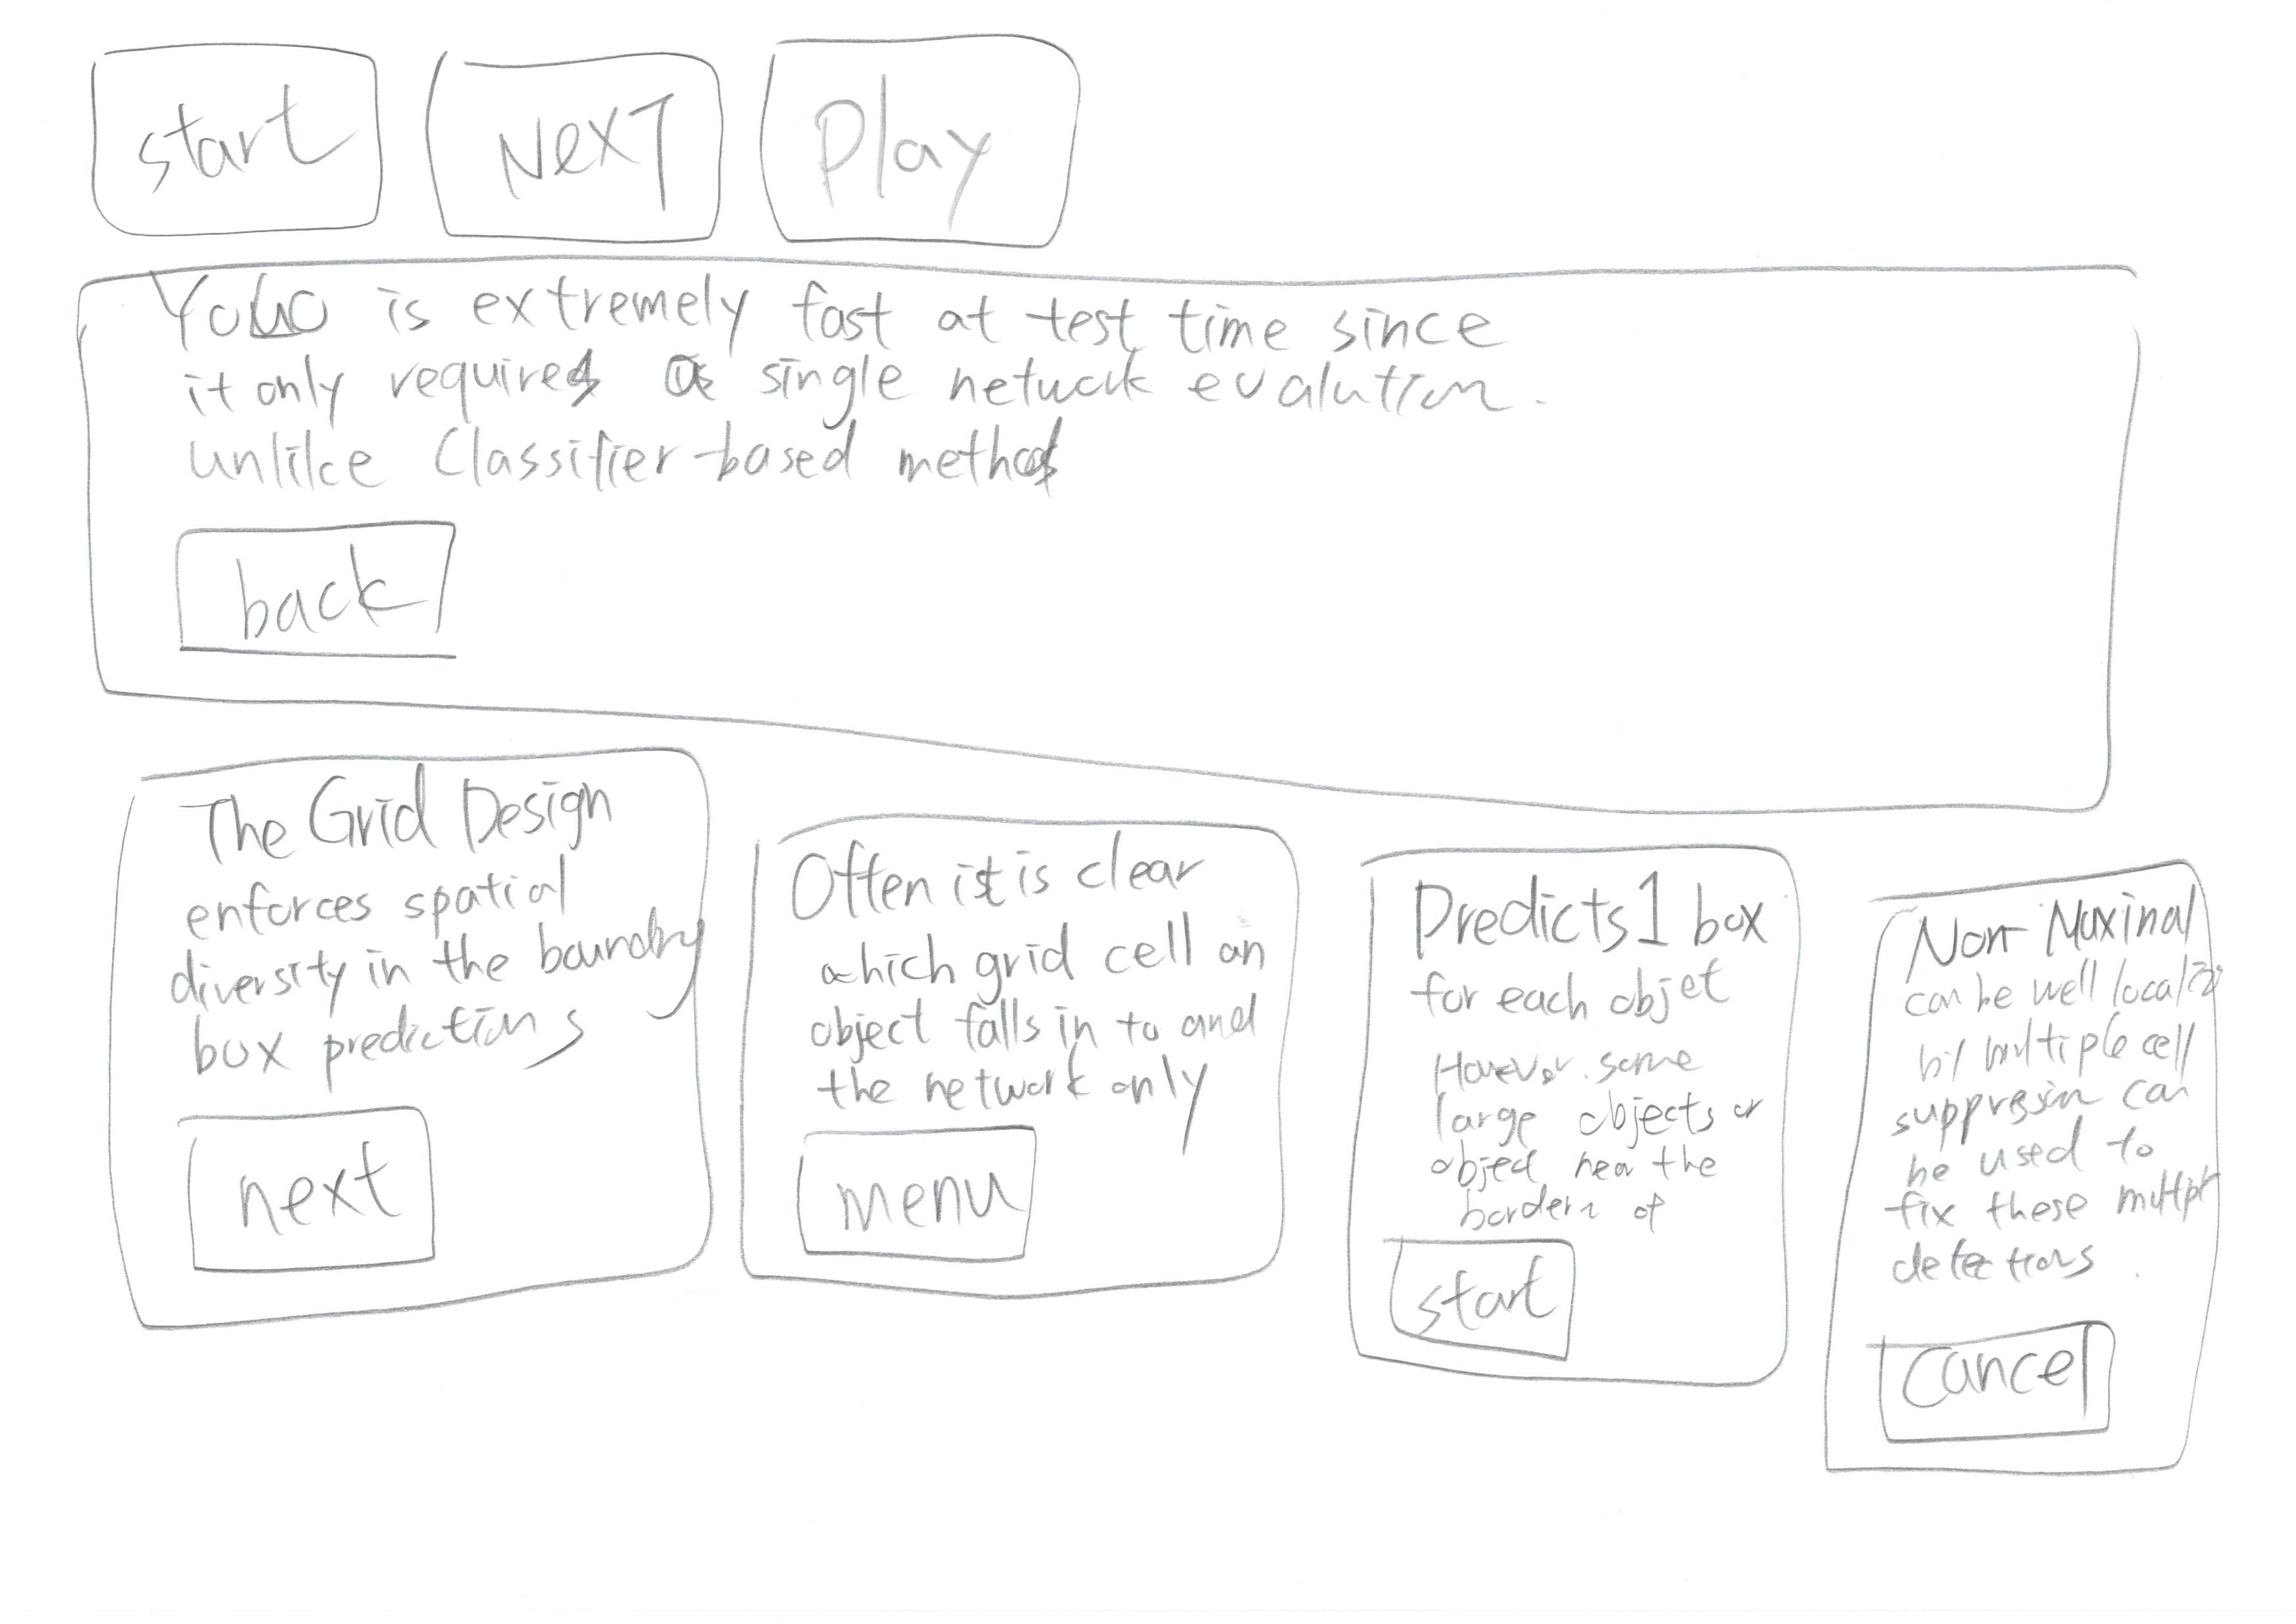 start
NexT
Play
YoLO is extremely fast at test time since
it only requires a single network evalution.
unlike Classifier-based method
back
The Grid Design
enforces spatial
diversity in the boundry
box predictions
next
Often it is clear
which grid cell an
object falls in to and
the network only
menu
Predicts 1 box
for each objet
However. some
large objects or
object near the
border of
start
Non Maximal
can be well localiz
by multiple cell
suppression can
be used to
fix these multipl
detections.
cancel